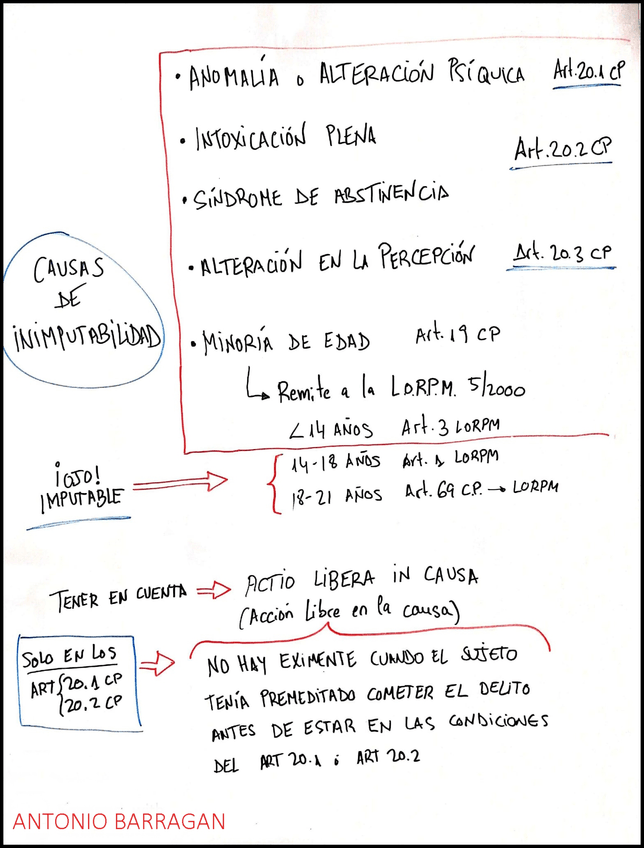 • ANOMALÍA O ALTERACIÓN PSÍQUICA Art.20.1 CP
• INTOXICACIÓN PLENA
Art.20.2 CP
• SÍNDROME DE ABSTINENCIA
• ALTERACIÓN EN LA PERCEPCIÓN Art. 20.3 CP
CAUSAS
DE
INIMPUTABILIDAD
• MINORÍA DE EDAD Art.19 CP
↳ Remite a la L.O.R.P.M. 5/2000
<14 AÑOS Art.3 LORPM
¡OJO!
IMPUTABLE ⇒
14-18 AÑOS Art. 1 LORPM
18-21 AÑOS Art.69 C.P. → LORPM
TENER EN CUENTA ⇒ ACTIO LIBERA IN CAUSA
(Acción Libre en la causa)
SOLO EN LOS
ART { 20.1 CP
20.2 CP
⇒
NO HAY EXIMENTE CUANDO EL SUJETO
TENÍA PREMEDITADO COMETER EL DELITO
ANTES DE ESTAR EN LAS CONDICIONES
DEL ART 20.1 ó ART 20.2
ANTONIO BARRAGAN